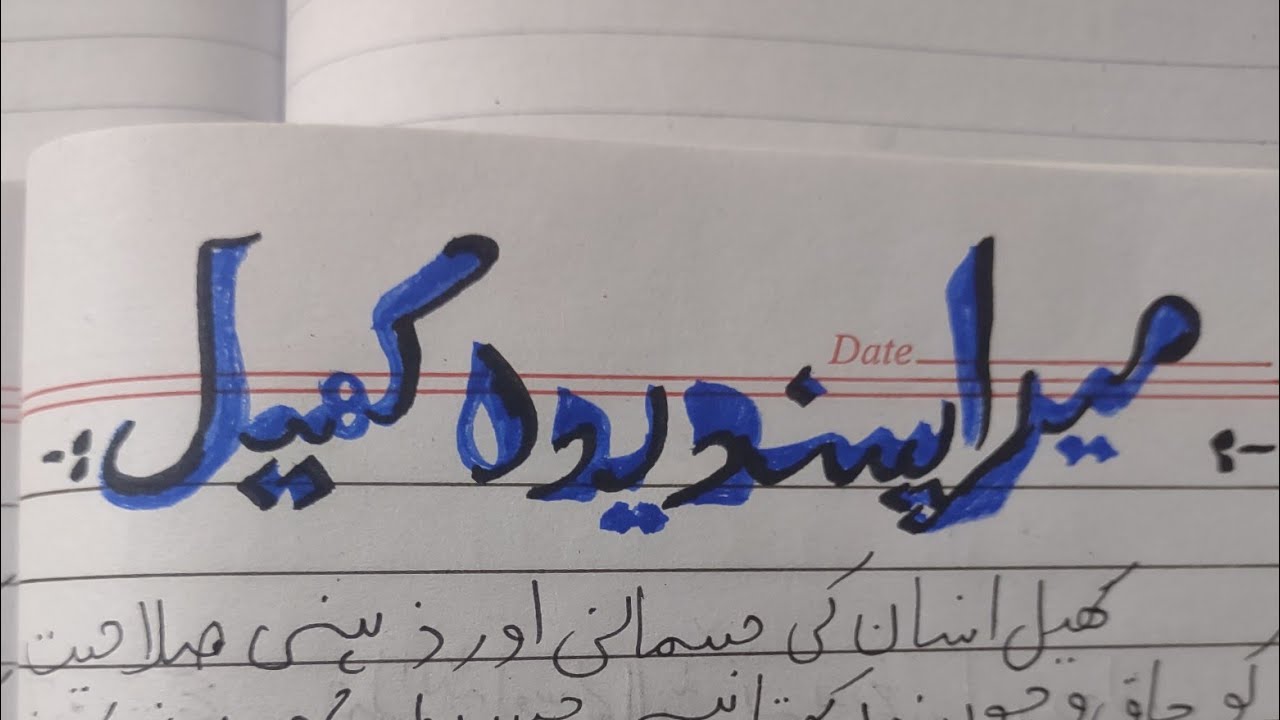 Date
میرا پسندیدہ کھیل
کھیل انسان کی جسمانی اور ذہنی صلاحیت
کو چاق و چوبند